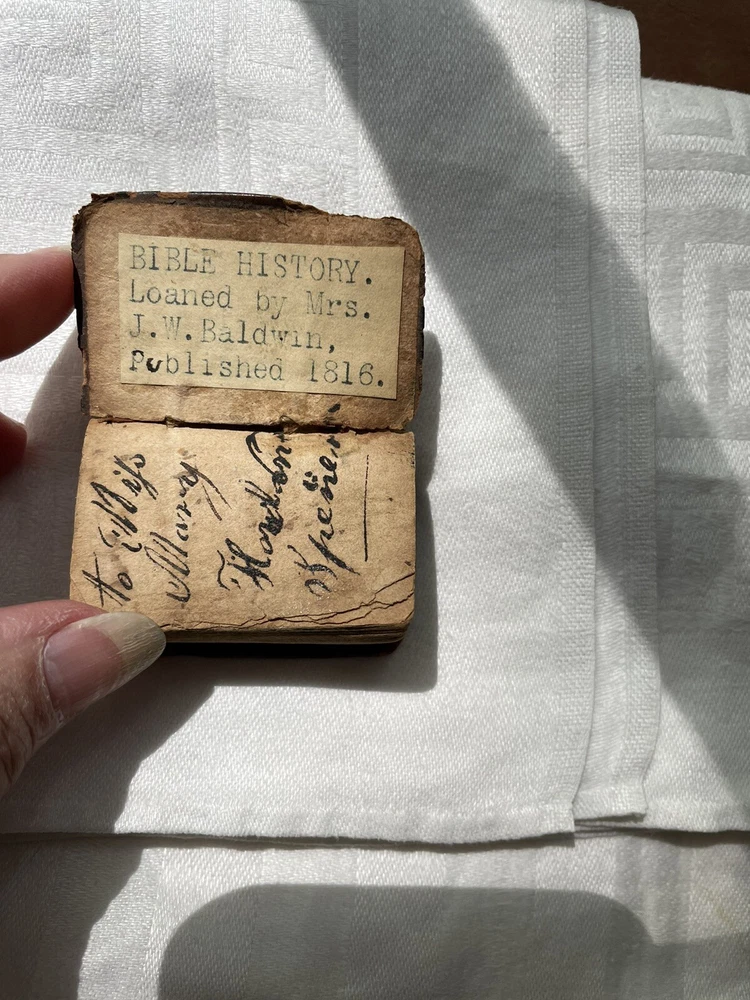 BIBLE HISTORY.
Loaned by Mrs.
J.W.Baldwin,
Published 1816.
to Miss
Mary